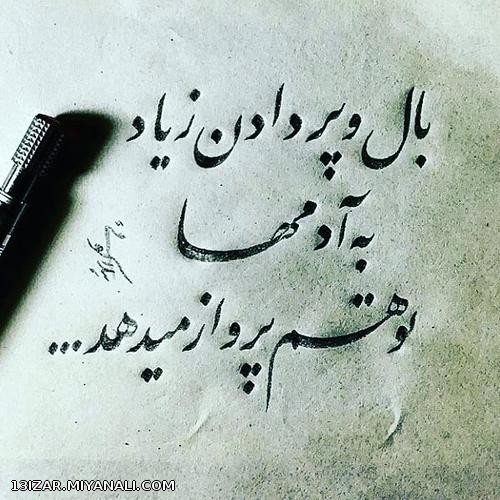 بال و پر دادن زیاد
به آدمها
توهم پرواز میدهد...
13IZAR.MIYANALI.COM